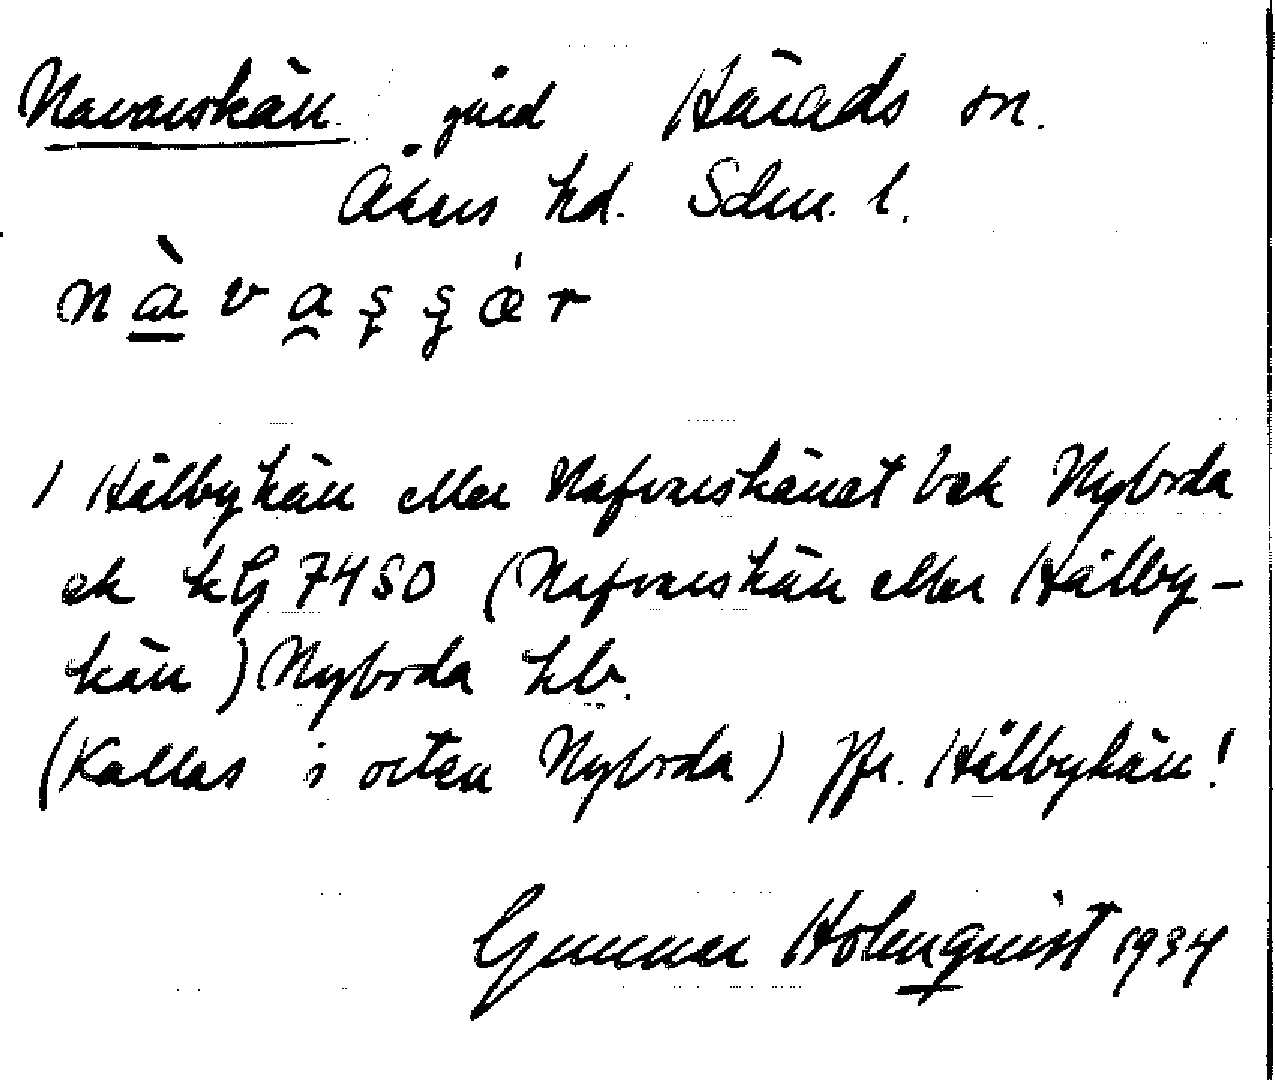 Navarskärr gård Härads sn.
Åkers hd. Sdm. l.
nàvaʂʂǽr
1 Hälbykärr eller Nafvarskärret bek Nyboda
ek kG 7450 (Nafvarskärr eller Hälby-
kärr) Nyboda kb.
(Kallas i orten Nyboda) Jfr. Hälbykärr!
Gunnar Holmquist 1934